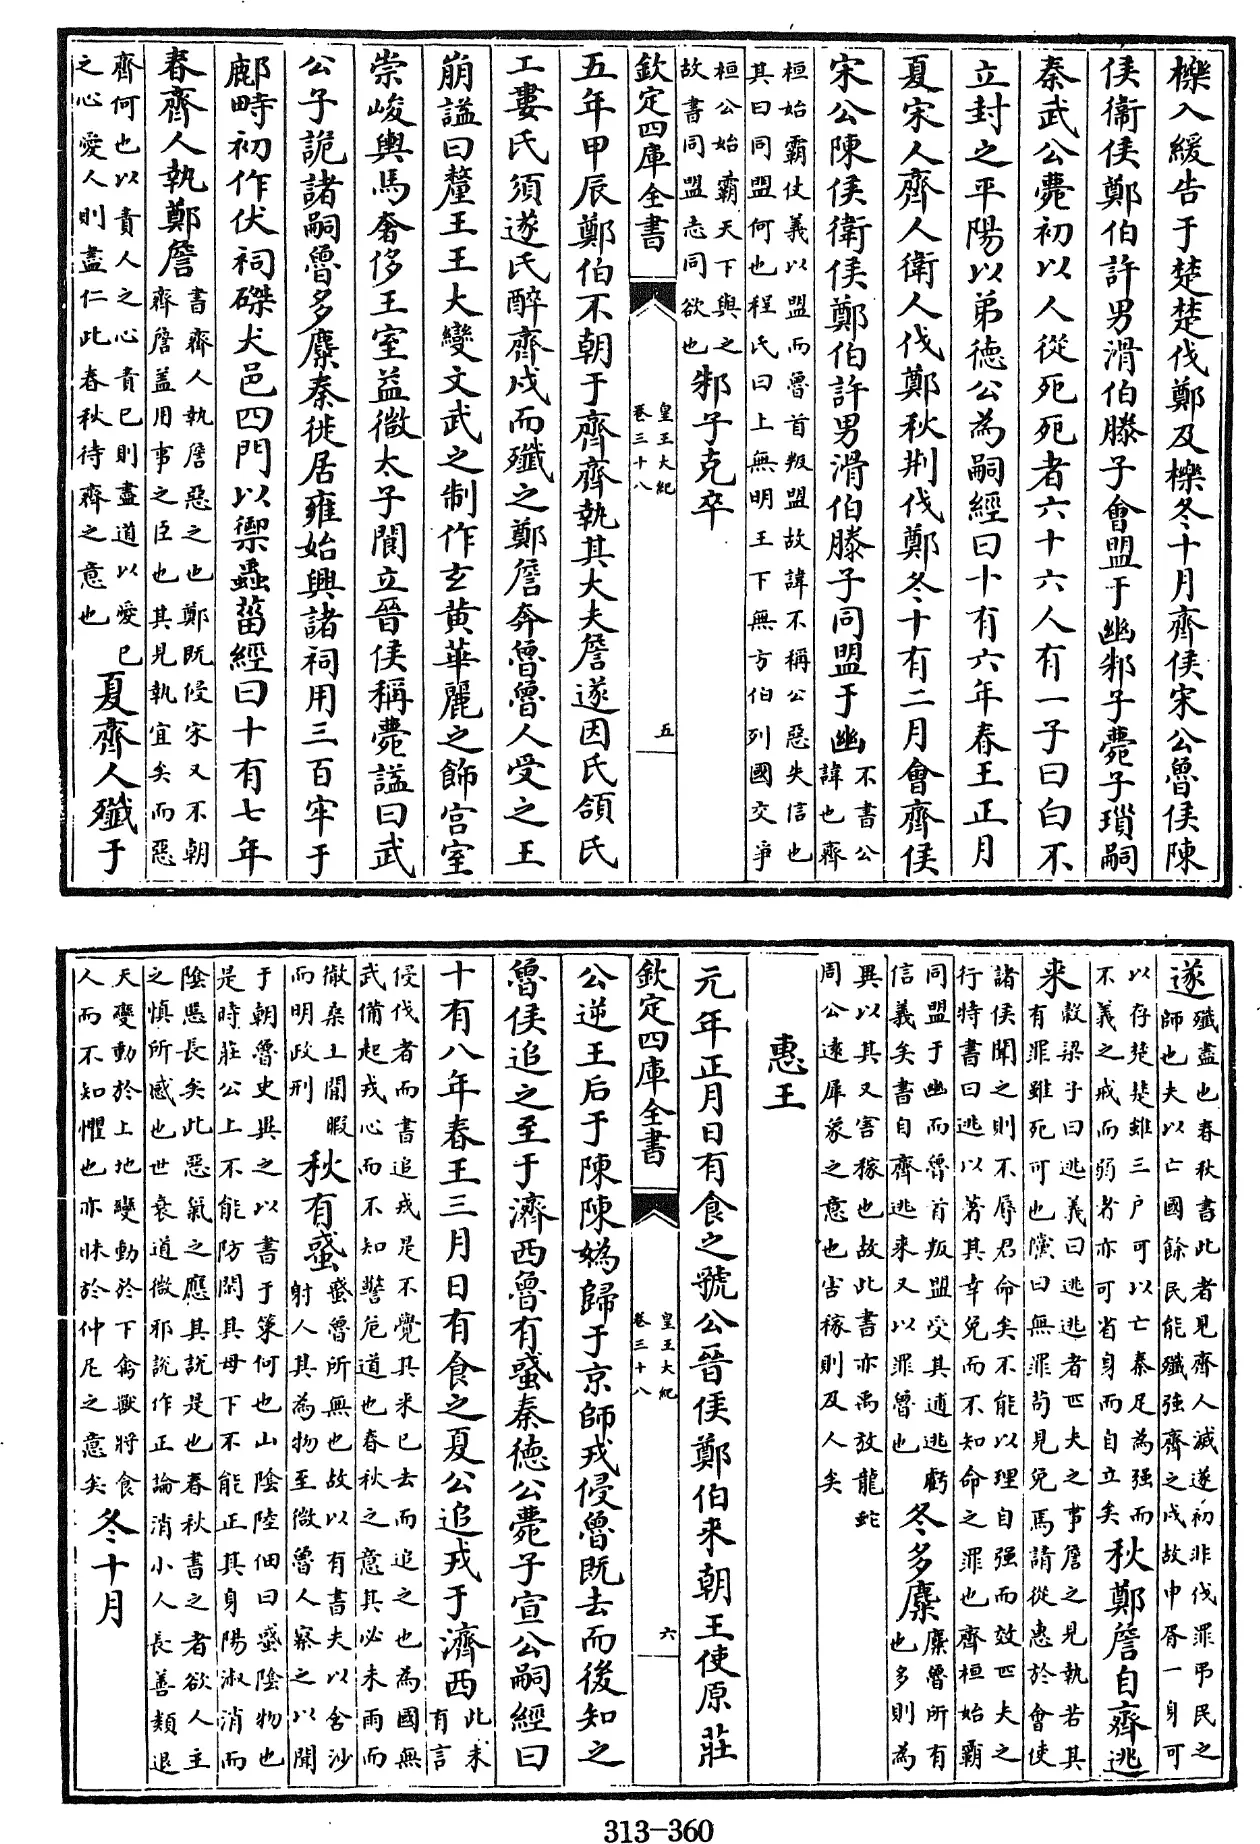 櫟入緩告于楚楚伐鄭及櫟冬十月齊侯宋公魯侯陳
侯衞侯鄭伯許男滑伯滕子會盟于幽邾子薨子瑣嗣
秦武公薨初以人從死死者六十六人有一子曰白不
立封之平陽以弟德公為嗣經曰十有六年春王正月
夏宋人齊人衛人伐鄭秋荆伐鄭冬十有二月會齊侯
宋公陳侯衛侯鄭伯許男滑伯滕子同盟于幽
不書公
諱也齊
桓始霸仗義以盟而魯首叛盟故諱不稱公惡失信也
其曰同盟何也程氏曰上無明王下無方伯列國交爭
桓公始霸天下與之
故書同盟志同欲也
邾子克卒
欽定四庫全書
皇王大紀
卷三十八
五
五年甲辰鄭伯不朝于齊齊執其大夫詹遂因氏頜氏
工婁氏須遂氏醉齊戍而殲之鄭詹奔魯魯人受之王
崩諡曰釐王王大變文武之制作玄黄華麗之飾宫室
崇峻輿馬奢侈王室益微太子閬立晉侯稱薨諡曰武
公子詭諸嗣魯多麋秦徙居雍始興諸祠用三百牢于
鄜畤初作伏祠磔犬邑四門以禦蟲菑經曰十有七年
春齊人執鄭詹
書齊人執詹惡之也鄭既侵宋又不朝
齊詹盖用事之臣也其見執宜矣而惡
齊何也以責人之心責已則盡道以愛已
之心愛人則盡仁此春秋待齊之意也
夏齊人殲于
遂
殲盡也春秋書此者見齊人滅遂初非伐罪弔民之
師也夫以亡國餘民能殲强齊之戍故申胥一身可
以存楚楚雖三户可以亡秦足為强而
不義之戒而弱者亦可省身而自立矣
秋鄭詹自齊逃
来
穀梁子曰逃義曰逃逃者匹夫之事詹之見執若其
有罪雖死可也儻曰無罪苟見免焉請從惠於會使
諸侯聞之則不辱君命矣不能以理自强而效匹夫之
行特書曰逃以著其幸免而不知命之罪也齊桓始霸
同盟于幽而魯首叛盟受其逋逃虧
信義矣書自齊逃来又以罪魯也
冬多麋
麋魯所有
也多則為
異以其又害稼也故此書亦禹放龍蛇
周公遠犀象之意也害稼則及人矣
惠王
元年正月日有食之虢公晉侯鄭伯来朝王使原莊
欽定四庫全書
皇王大紀
卷三十八
六
公逆王后于陳陳媯歸于京師戎侵魯既去而後知之
魯侯追之至于濟西魯有蜮秦德公薨子宣公嗣經曰
十有八年春王三月日有食之夏公追戎于濟西
此未
有言
侵伐者而書追戎是不覺其来已去而追之也為國無
武備起戎心而不知警危道也春秋之意其必未雨而
徹桑土閒暇
而明政刑
秋有蜮
蜮魯所無也故以有書夫以含沙
射人其為物至微魯人察之以聞
于朝魯史異之以書于策何也山陰陸佃曰蜮陰物也
是時莊公上不能防閑其母下不能正其身陽淑消而
陰慝長矣此惡氣之應其說是也春秋書之者欲人主
之慎所感也世衰道微邪說作正論消小人長善類退
天變動於上地變動於下禽獸將食
人而不知懼也亦昧於仲尼之意矣
冬十月
313-360